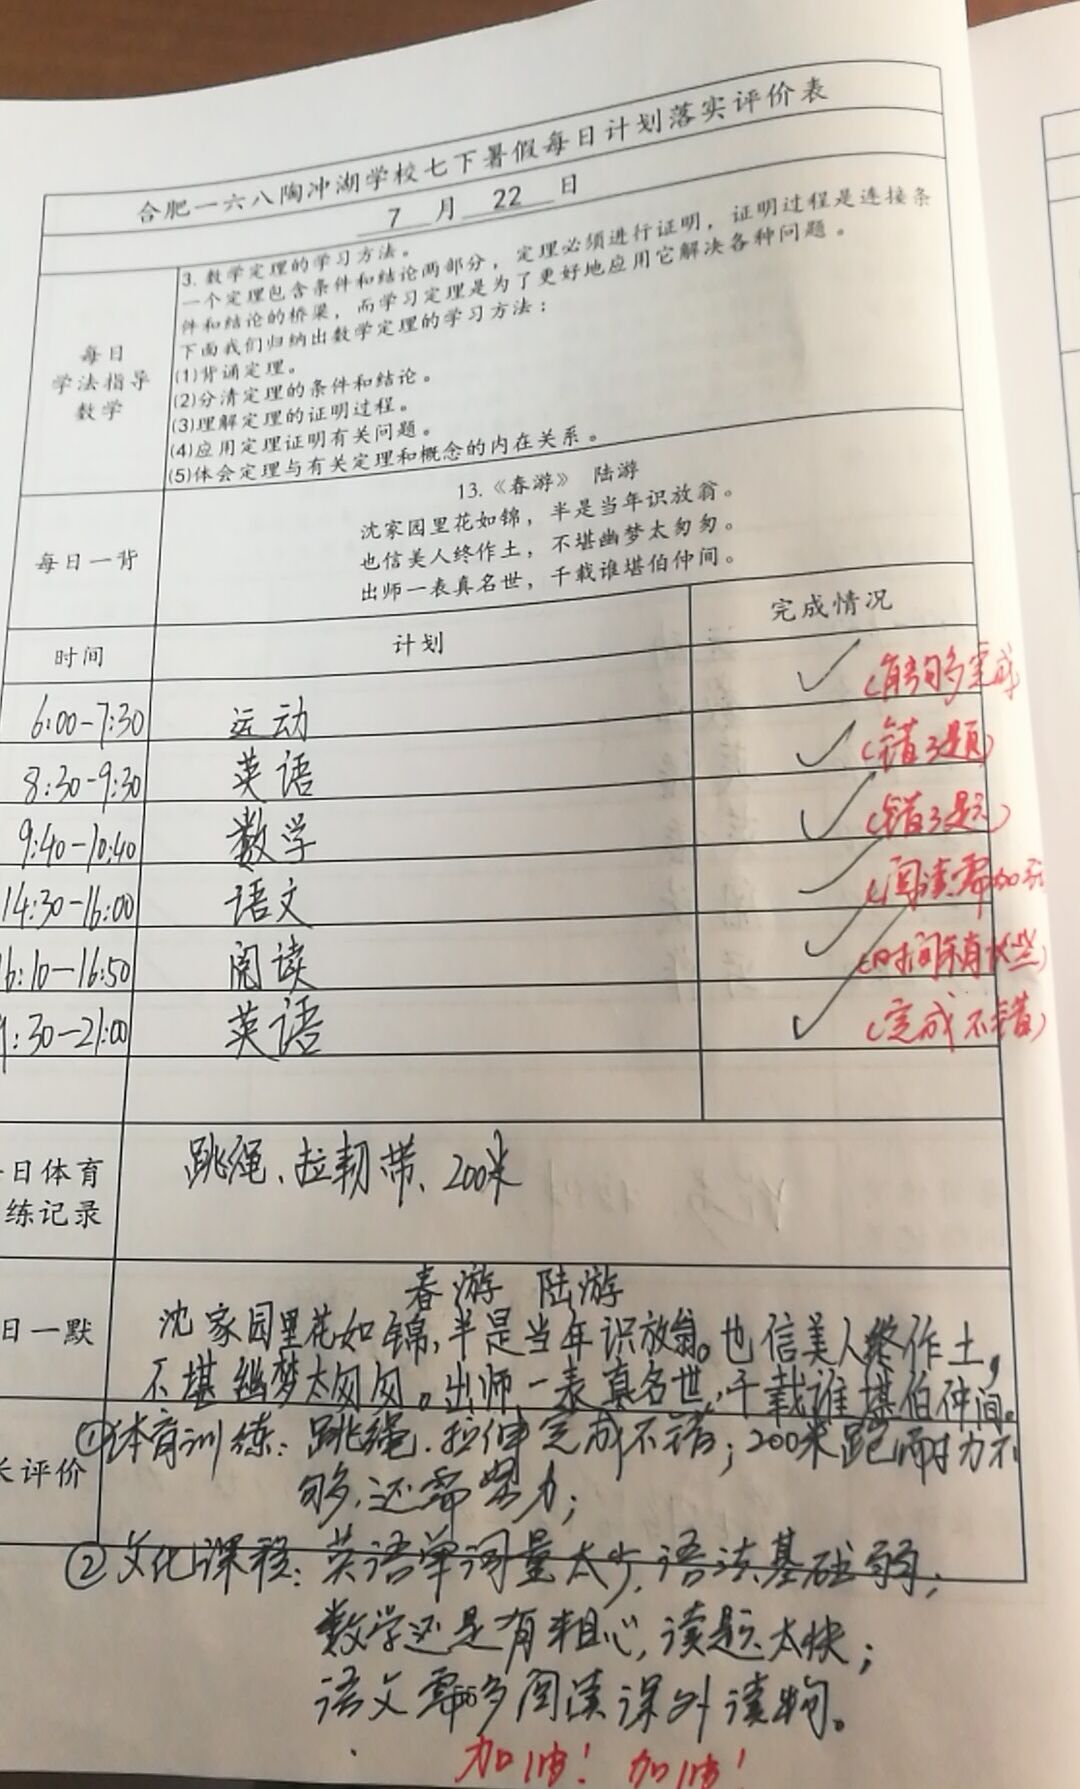 合肥一六八陶冲湖学校七下暑假每日计划落实评价表
7 月 22 日
每日
学法指导
数学
3. 数学定理的学习方法。
一个定理包含条件和结论两部分，定理必须进行证明，证明过程是连接条
件和结论的桥梁，而学习定理是为了更好地应用它解决各种问题。
下面我们归纳出数学定理的学习方法：
(1)背诵定理。
(2)分清定理的条件和结论。
(3)理解定理的证明过程。
(4)应用定理证明有关问题。
(5)体会定理与有关定理和概念的内在关系。
每日一背
13.《春游》 陆游
沈家园里花如锦，半是当年识放翁。
也信美人终作土，不堪幽梦太匆匆。
出师一表真名世，千载谁堪伯仲间。
时间 计划 完成情况
6:00-7:30 运动 ✓ (能够多完成
8:30-9:30 英语 ✓ (错3题)
9:40-10:40 数学 ✓ (错3题)
14:30-16:00 语文 ✓ (阅读需加
6:10-16:50 阅读 ✓ (时间
:30-21:00 英语 ✓ (完成不错)
日体育
练记录
跳绳、拉韧带、200米
日一默
春游 陆游
沈家园里花如锦,半是当年识放翁。也信美人终作土,
不堪幽梦太匆匆。出师一表真名世,千载谁堪伯仲间。
长评价
①体育训练: 跳绳、拉伸完成不错; 200米跑耐力不
够,还需努力;
②文化课程: 英语单词量太少,语法基础弱;
数学还是有粗心,读题太快;
语文需多阅读课外读物。
加油! 加油!